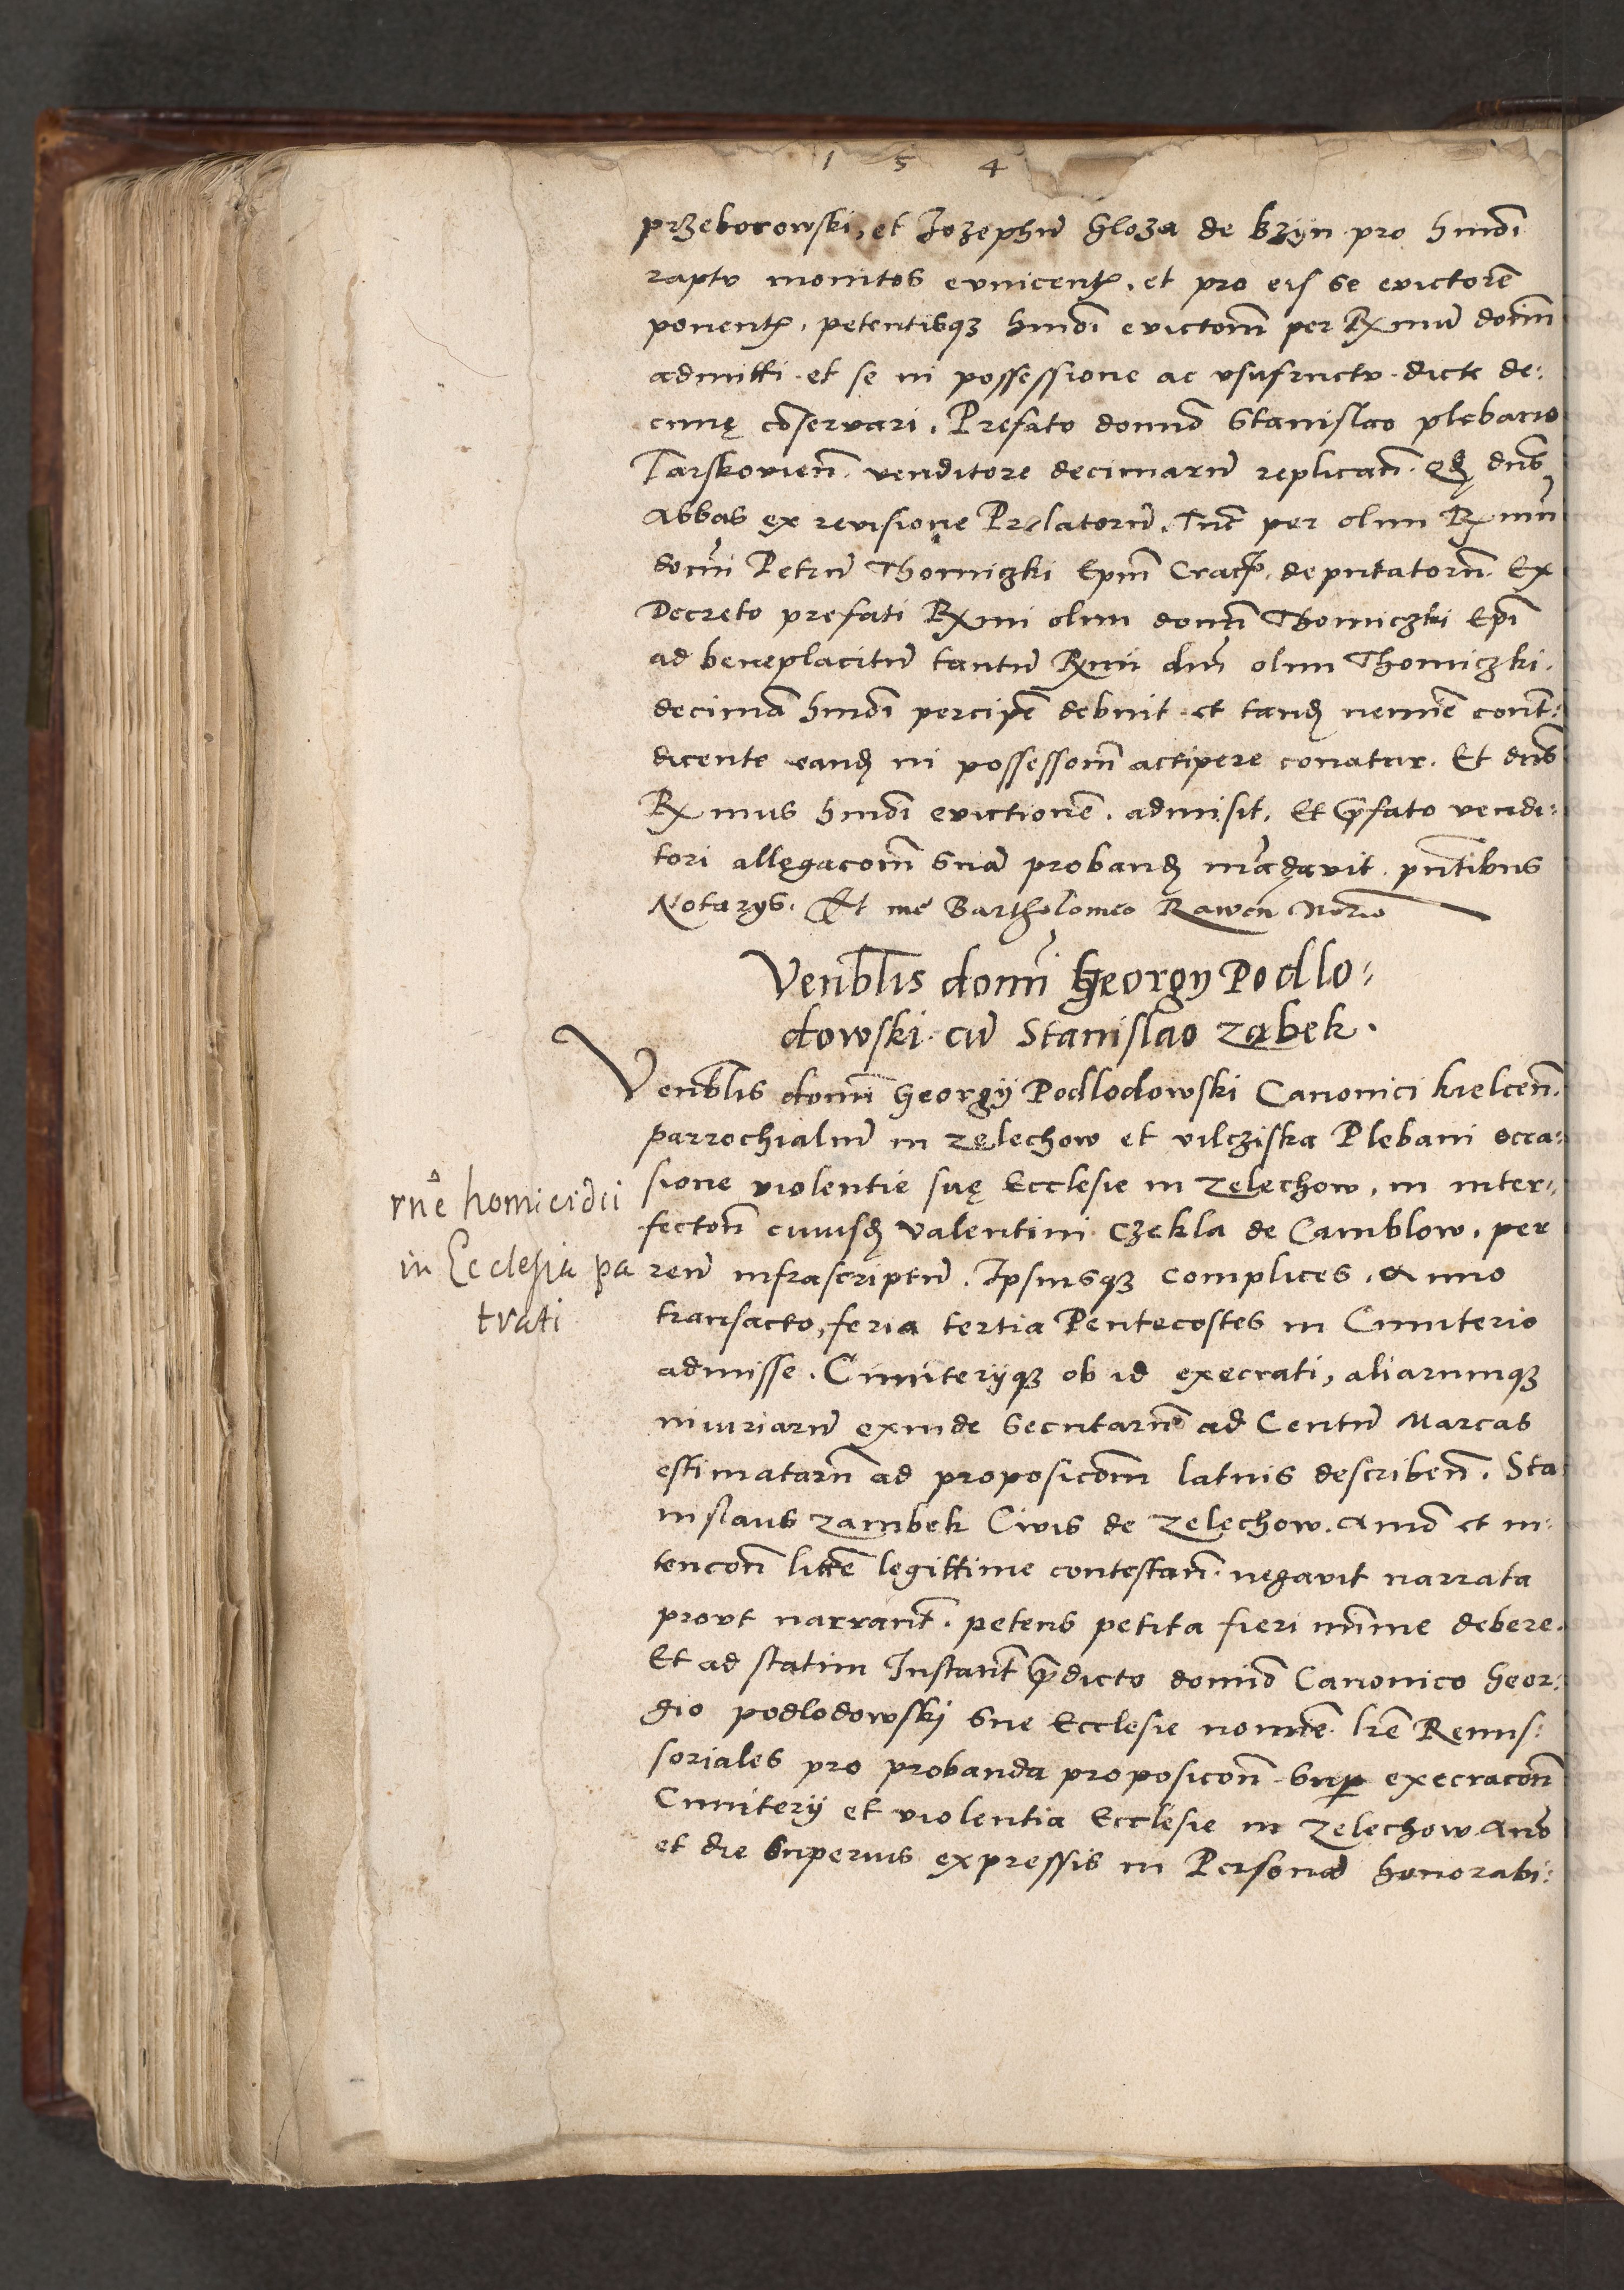 1 5 4
przeborowski, et Jozephū Gloza de bzyn pro hmōi
raptu monitos evnicent, et pro eis se evictorē
ponent, petentisqȝ hmōi evictorē per Rmū dom̄
admitti et se in possessione ac vsufructu dicte de:
cimę cōservari. Prefato domino Stanislao plebano
Tarskovien̄ venditore decimarū replican̄ qd dn̄s
Abbas ex revisione Prelatorū, Tūc per olim Rmū
dom̄ Petrū Thomiczki Epm̄ Crac deputatorū Ex
Decreto prefati Rmi olim dom̄ Thomiczki Epi
ad beneplacitū tantū Rmi dn̄i olim Thomiczki
decimā hmōi percipē debuit et tandē nemīe cont:
dicente eandē in possessionē accipere conatur. Et dn̄s
Rmus hmōi evictionē admisit. Et p̄fato vendi:
tori allęgacōm suā proband mādavit pn̄tibus
Notarys. Et me Bartholomeo Rawen Norio
Venblis domi Georgy Podlo:
dowski cū Stanislao ząbek.
Venblis domi Georgij Podlodowski Canonici kielcen̄
parrochialiū in zelechow et vilcziska Plebani occa:
sione violentie suę Ecclesie in zelechow, in inter:
fectōn cuiusd Valentini Czekla de Camblow, per
reū infrascriptū. Ipsiusqȝ complices, Anno
transacto, feria tertia Pentecostes in Cimiterio
admisse. Cimiterijqȝ ob id execrati, aliarumqȝ
iniuriarū exinde secutarū ad Centū Marcas
estimatarū ad proposicōm latius describen̄. Sta
nislaus zambek Civis de zelęchow. Animō et in:
tencōn littē legittime contestan̄ negavit narrata
prout narrant. petens petita fieri mīme debere.
Et ad statim Instant p̄dicto dominō Canonico Geor:
gio podlodowskj sue Ecclesie nomīe lrē Remis:
soriales pro probanda proposicōn sup execracōn
Cimiterij et violentia Ecclesie in zelechow Ano
et die superius expressis in Personā honorabi:
rnē homicidii
in Ecclesia pa
trati